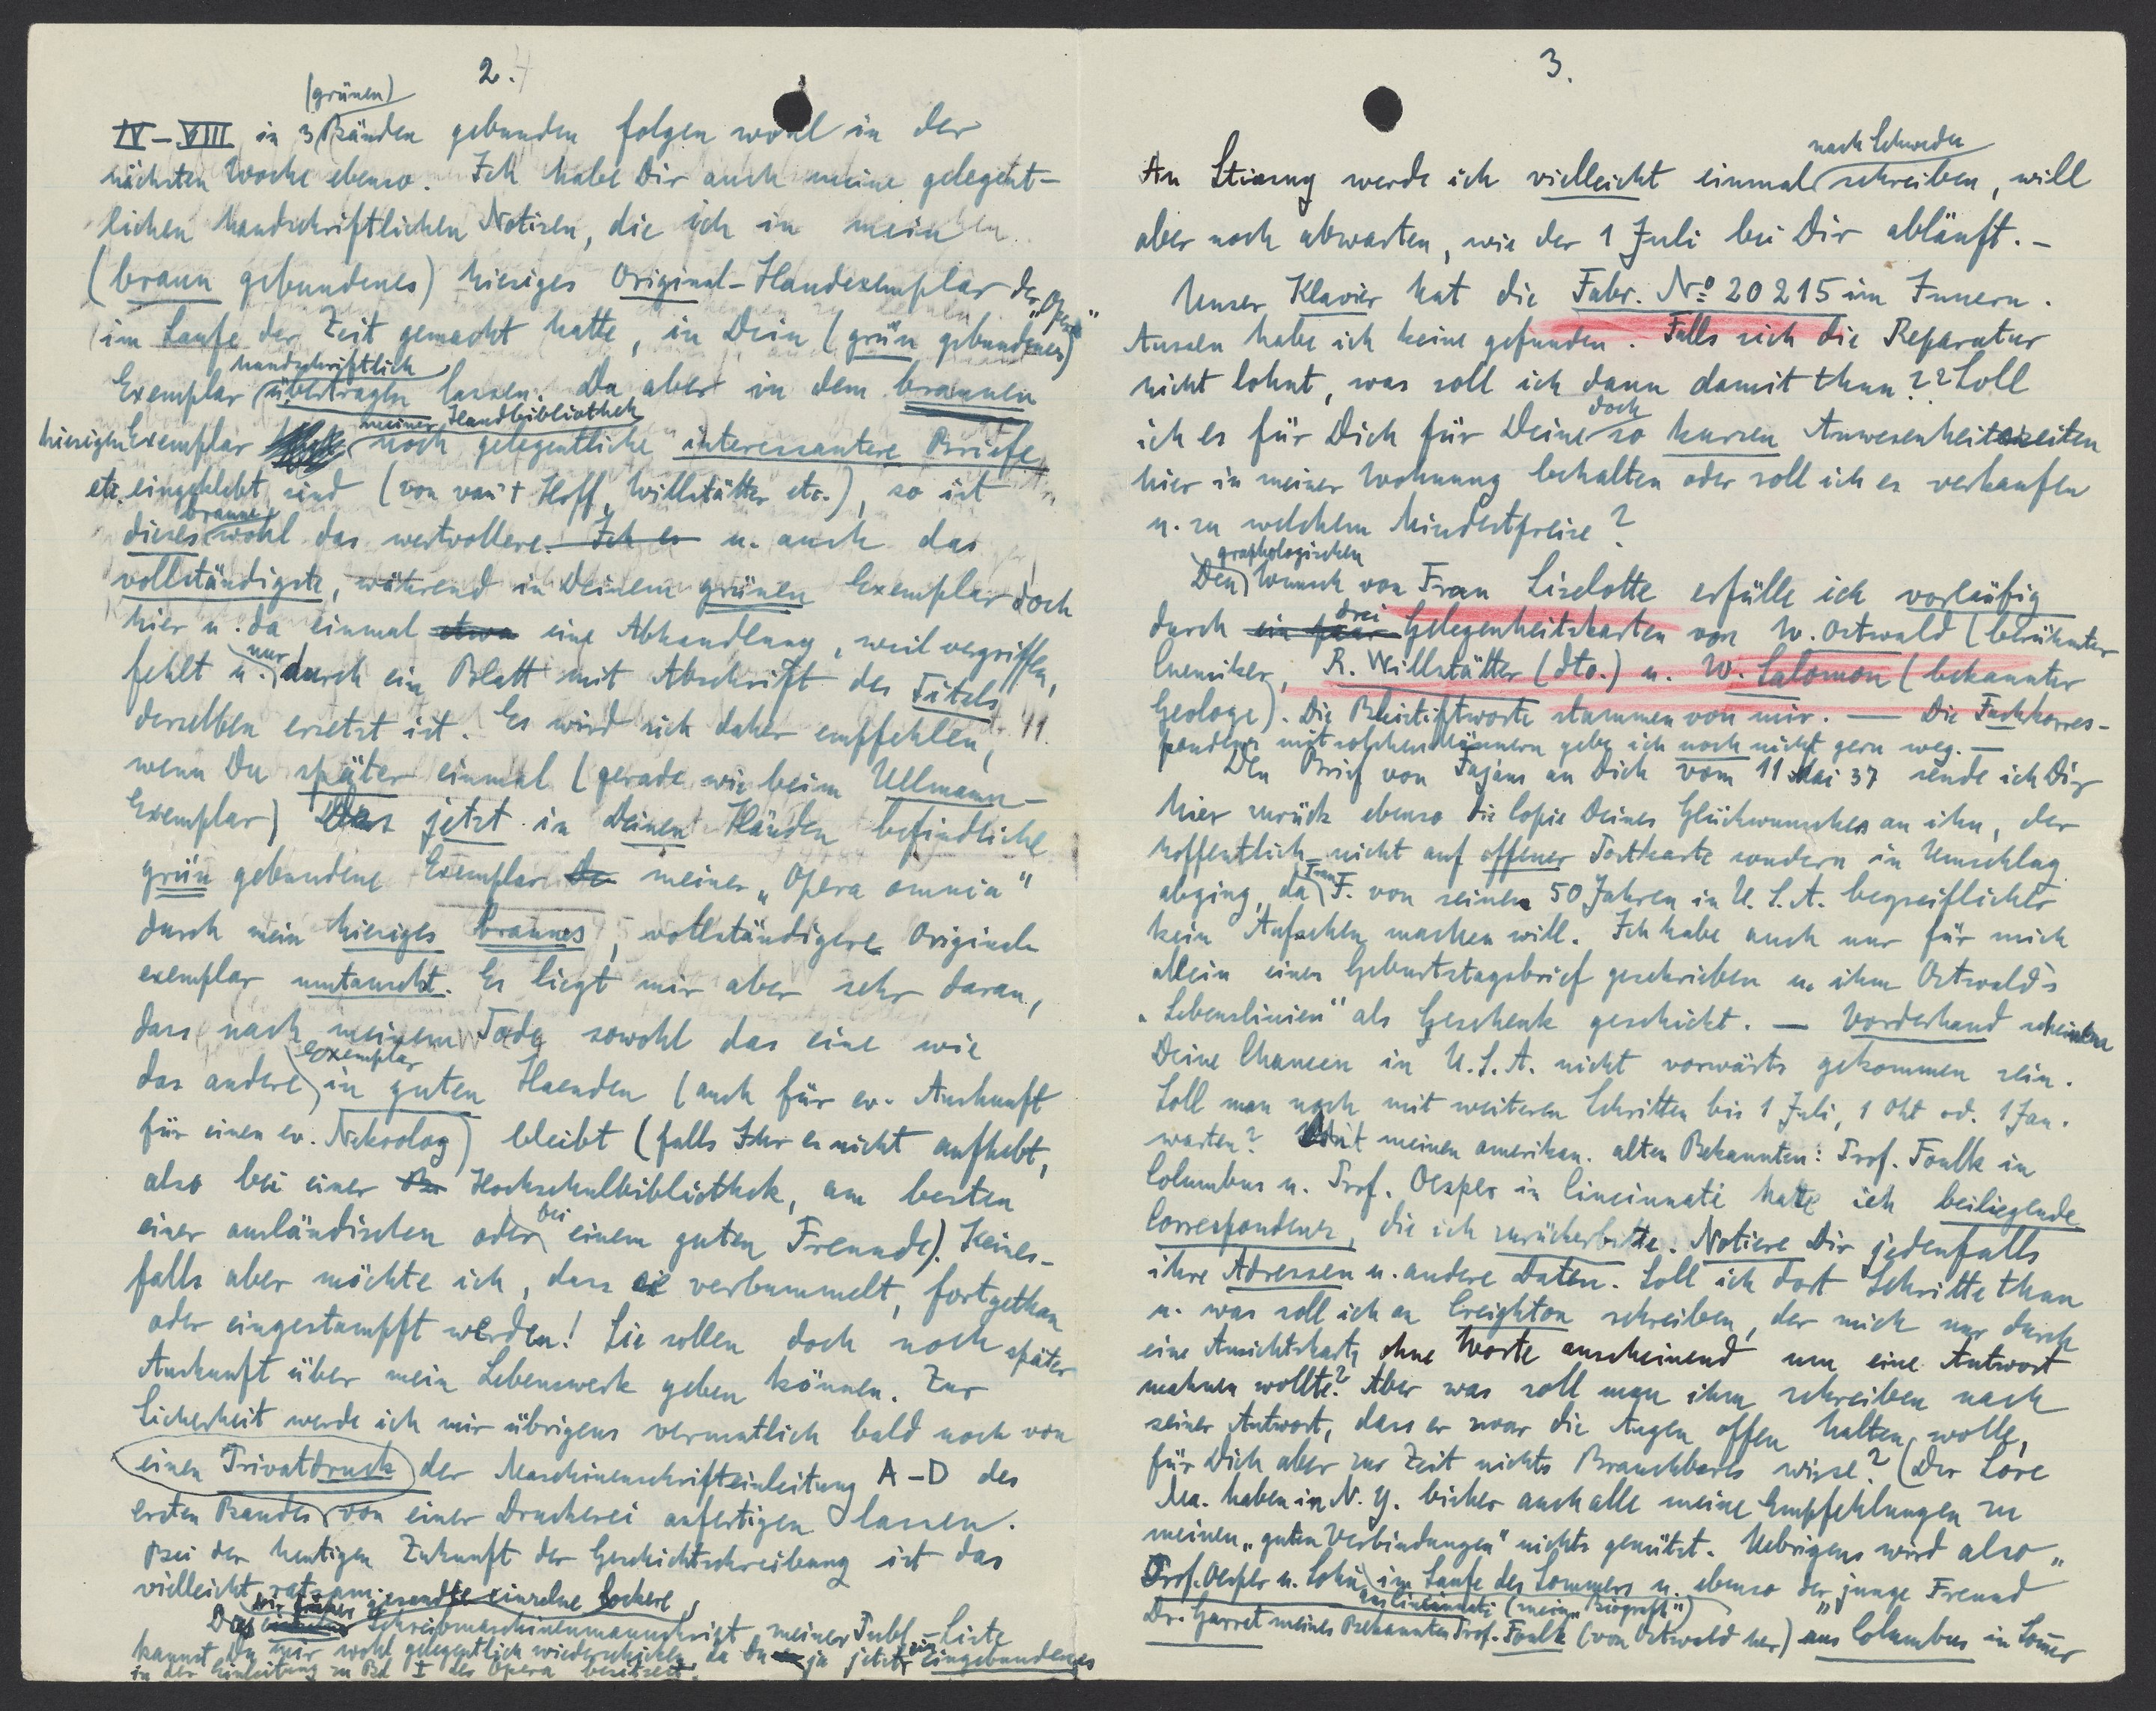 2.
(grünen)
IV–VIII in 3 Bänden gebunden folgen wohl in der
nächsten Woche ebenso. Ich habe Dir auch meine gelegent-
lichen handschriftlichen Notizen, die ich in mein
(braun gebundenes) hiesiges Original-Handexemplar der „Opera"
im Laufe der Zeit gemacht hatte, in Dein (grün gebundenes)
handschriftlich
Exemplar übertragen lassen. Da aber in dem braunen
meiner Handbibliothek
hiesigen Exemplar noch gelegentliche interessantere Briefe
etc. eingeklebt sind (von van't Hoff, Willstätter etc.), so ist
braune
dieses wohl das wertvollere. Ich es u. auch das
vollständigste, während in Deinem grünen Exemplar doch
hier u. da einmal etwa eine Abhandlung, weil vergriffen,
nur
fehlt u. durch ein Blatt mit Abschrift des Titels
derselben ersetzt ist. Es wird sich daher empfehlen,
wenn Du später einmal (gerade wie beim Ullmann-
Exemplar) Das jetzt in Deinen Händen befindliche
grün gebundene Exemplar meiner „Opera omnia"
durch mein hiesiges braunes, vollständigeres Original-
exemplar umtauscht. Es liegt mir aber sehr daran,
dass nach meinem Tode sowohl das eine wie
Exemplar
das andere in guten Haenden (auch für ev. Auskunft
für einen ev. Nekrolog) bleibt (falls Ihr es nicht aufhebt,
also bei einer Hochschulbibliothek, am besten
bei
einer ausländischen oder einem guten Freunde). Keines-
falls aber möchte ich, dass sie verbummelt, fortgethan
oder eingestampft werden! Sie sollen doch noch später
Auskunft über mein Lebenswerk geben können. Zur
Sicherheit werde ich mir übrigens vermutlich bald noch von
einen Privatdruck der Maschinenschrifteinleitung A–D des
ersten Bandes von einer Druckerei anfertigen lassen.
Bei der heutigen Zukunft der Geschichtschreibung ist das
vielleicht ratsam.
Dir früher gesandte einzelne lockere
Das Schreibmaschinenmanuskript meiner Publ.-Liste
kannst Du mir wohl gelegentlich wiederschicken, da Du ja jetzt ein eingebundenes
in der Einleitung zu Bd. I der Opera besitzest.
3.
nach Schweden
An Stieung werde ich vielleicht einmal schreiben, will
aber noch abwarten, wie der 1 Juli bei Dir abläuft. –
Unser Klavier hat die Fabr. No 20215 im Innern.
Aussen habe ich keine gefunden. Falls sich die Reparatur
nicht lohnt, was soll ich dann damit thun?? Soll
doch
ich es für Dich für Deine so kurzen Anwesenheitszeiten
hier in meiner Wohnung behalten oder soll ich es verkaufen
u. zu welchem Mindestpreise?
graphologischen
Den Wunsch von Frau Liselotte erfülle ich vorläufig
drei
durch ein paar Gelegenheitskarten von W. Ostwald (berühmter
Chemiker, R. Willstätter (dto.) u. W. Salomon (bekannter
Geologe). Die Bleistiftworte stammen von mir. — Die Fachkorres-
pondenz mit solchen Männern gebe ich noch nicht gern weg. —
Den Brief von Fajans an Dich vom 11 Mai 37 sende ich Dir
hier zurück ebenso die Copie Deines Glückwunsches an ihn, der
hoffentlich nicht auf offener Postkarte sondern in Umschlag
abging, da F. von seinen 50 Jahren in U.S.A. begreiflicher
kein Aufsehen machen will. Ich habe auch nur für mich
allein einen Geburtstagsbrief geschrieben u. ihm Ostwald's
„Lebenslinien" als Geschenk geschickt. — Vorderhand scheinen
Deine Chancen in U.S.A. nicht vorwärts gekommen sein.
Soll man noch mit weiteren Schritten bis 1 Juli, 1 Okt od. 1 Jan.
warten? Mit meinen amerikan. alten Bekannten: Prof. Foulk in
Columbus u. Prof. Oesper in Cincinnati hatte ich beiliegende
Correspondenz, die ich zurückerbitte. Notiere Dir jedenfalls
ihre Adressen u. andere Daten. Soll ich dort Schritte thun
u. was soll ich an Creighton schreiben, der mich nur durch
eine Ansichtskarte ohne Worte anscheinend um eine Antwort
mahnen wollte? Aber was soll man ihm schreiben nach
seiner Antwort, dass er zwar die Augen offen halten wolle,
für Dich aber zur Zeit nichts Brauchbares wisse? (Der Lore
Ma. haben in N.Y. bisher auch alle meine Empfehlungen zu
meinen „guten Verbindungen" nichts genützt. Uebrigens wird also
Prof. Oesper u. Sohn im Laufe des Sommers u. ebenso der „junge Freund
aus Cincinnati (mein „Biograph")
Dr. Garret meines Bekannten Prof. Foulk (von Ostwald her) aus Columbus im Sommer